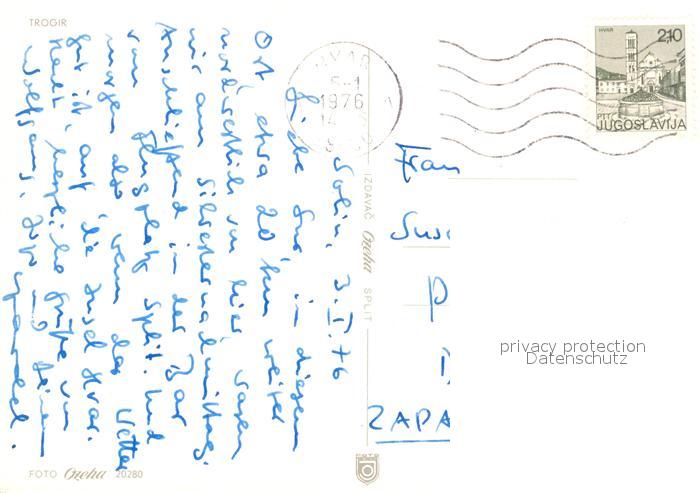 TROGIR
Solin, 3.I.76
Liebe Susi, in diesem
Ort etwa 20 km weiter
nordwestlich von hier waren
wir am Silvesternachmittag.
Anschließend in der Bar
vom Flugplatz Split. Und
morgen das wenn das Wetter
gut ist, auf die Insel Hvar.
herzliche Grüße von
HVAR
5-1
1976
14
HVAR
2,10
PTT
JUGOSLAVIJA
Fran
Sus
P
ZAPA
IZDAVAČ Ozeha SPLIT
FOTO Ozeha 20280
FOTO
privacy protection
Datenschutz